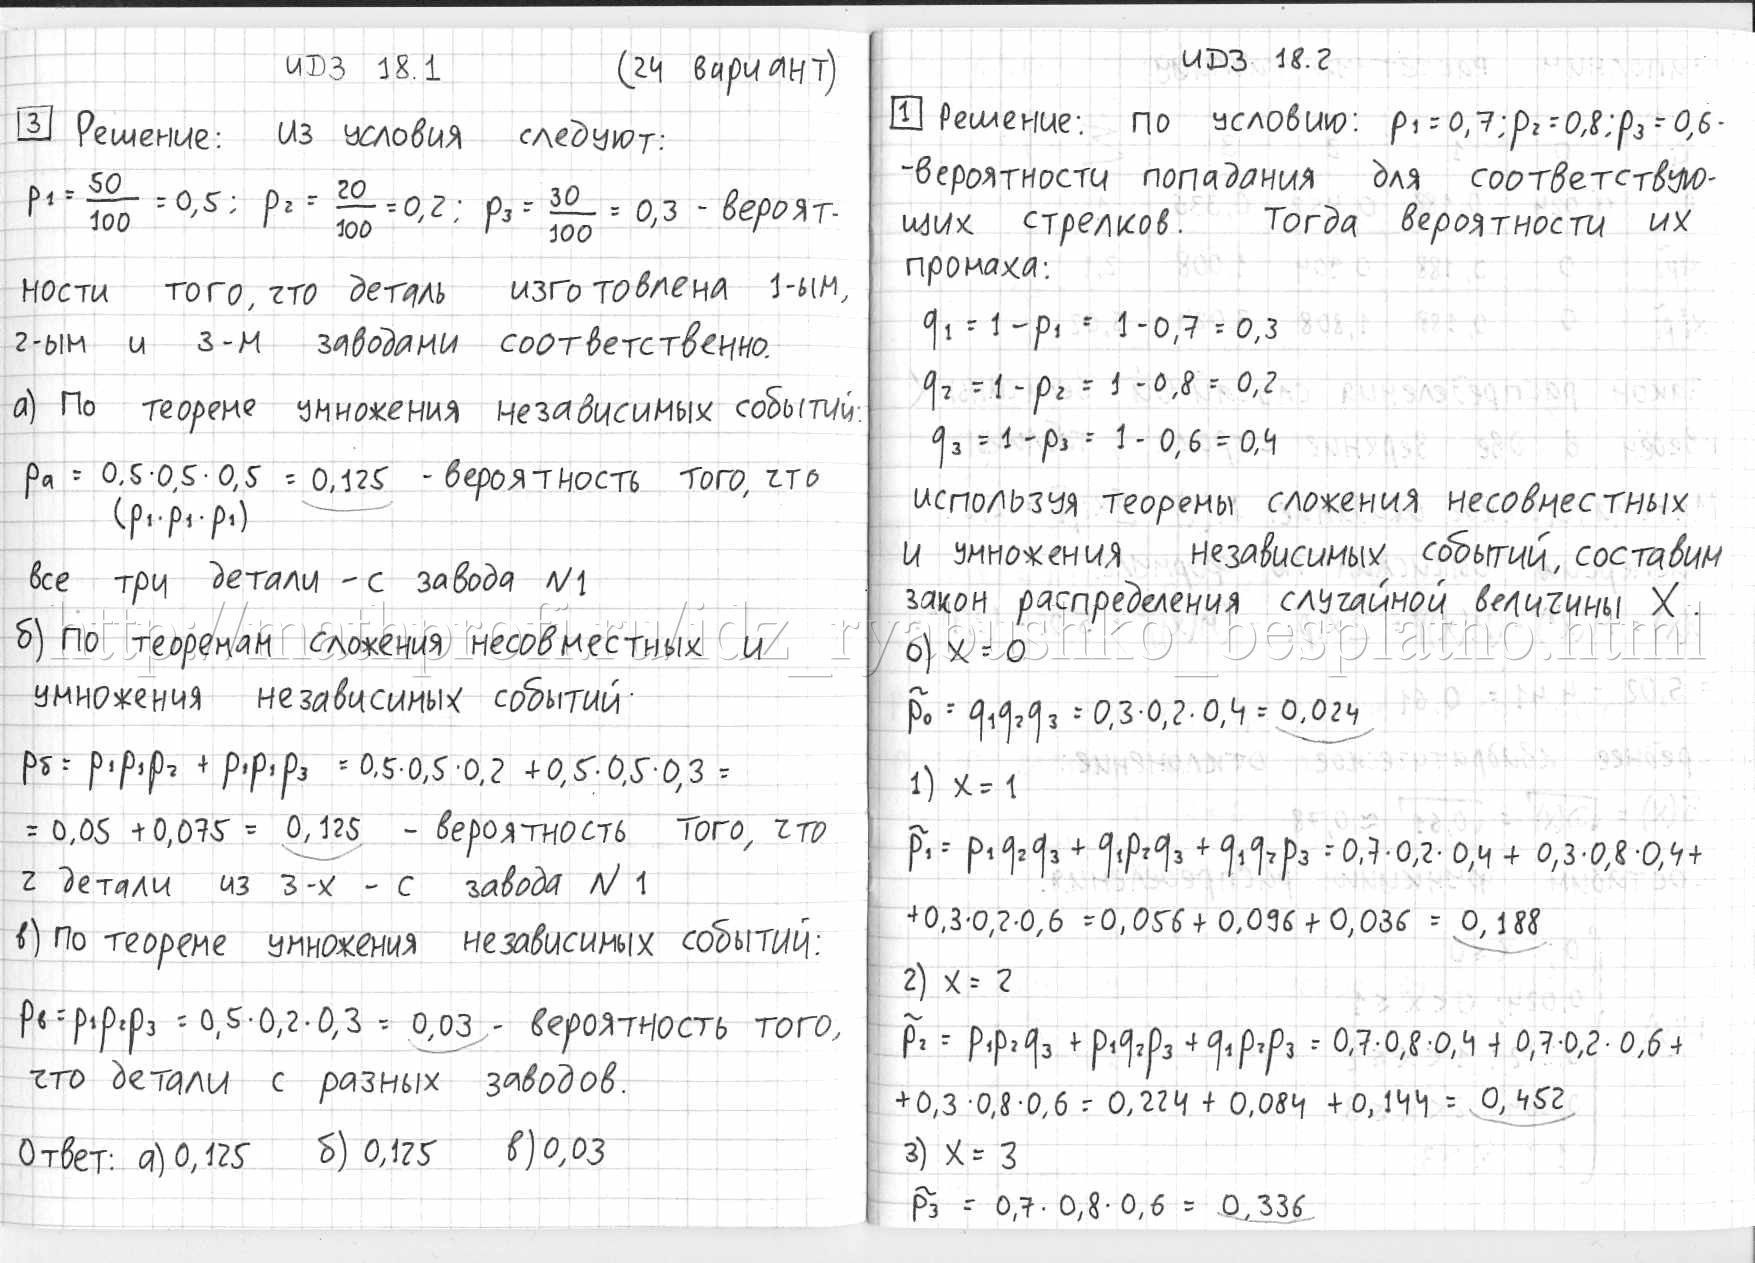 ИДЗ 18.1 (24 вариант)
3 Решение: из условия следуют:
p1 = 50/100 = 0,5; p2 = 20/100 = 0,2; p3 = 30/100 = 0,3 - вероят-
ности того, что деталь изготовлена 1-ым,
2-ым и 3-м заводами соответственно.
а) По теореме умножения независимых событий:
pа = 0,5·0,5·0,5 = 0,125 - вероятность того, что
(p1·p1·p1)
все три детали - с завода N1
б) По теоремам сложения несовместных и
умножения независимых событий:
pб = p1p1p2 + p1p1p3 = 0,5·0,5·0,2 + 0,5·0,5·0,3 =
= 0,05 + 0,075 = 0,125 - вероятность того, что
2 детали из 3-х - с завода N 1
в) По теореме умножения независимых событий:
pв = p1p2p3 = 0,5·0,2·0,3 = 0,03 - вероятность того,
что детали с разных заводов.
Ответ: а) 0,125 б) 0,125 в) 0,03
ИДЗ 18.2
1 Решение: по условию: p1 = 0,7; p2 = 0,8; p3 = 0,6 -
-вероятности попадания для соответствую-
щих стрелков. Тогда вероятности их
промаха:
q1 = 1 - p1 = 1 - 0,7 = 0,3
q2 = 1 - p2 = 1 - 0,8 = 0,2
q3 = 1 - p3 = 1 - 0,6 = 0,4
используя теоремы сложения несовместных
и умножения независимых событий, составим
закон распределения случайной величины X.
0) X = 0
p̃0 = q1q2q3 = 0,3·0,2·0,4 = 0,024
1) X = 1
p̃1 = p1q2q3 + q1p2q3 + q1q2p3 = 0,7·0,2·0,4 + 0,3·0,8·0,4 +
+ 0,3·0,2·0,6 = 0,056 + 0,096 + 0,036 = 0,188
2) X = 2
p̃2 = p1p2q3 + p1q2p3 + q1p2p3 = 0,7·0,8·0,4 + 0,7·0,2·0,6 +
+ 0,3·0,8·0,6 = 0,224 + 0,084 + 0,144 = 0,452
3) X = 3
p̃3 = 0,7·0,8·0,6 = 0,336
http://mathprofi.ru/idz_ryabushko_besplatno.html